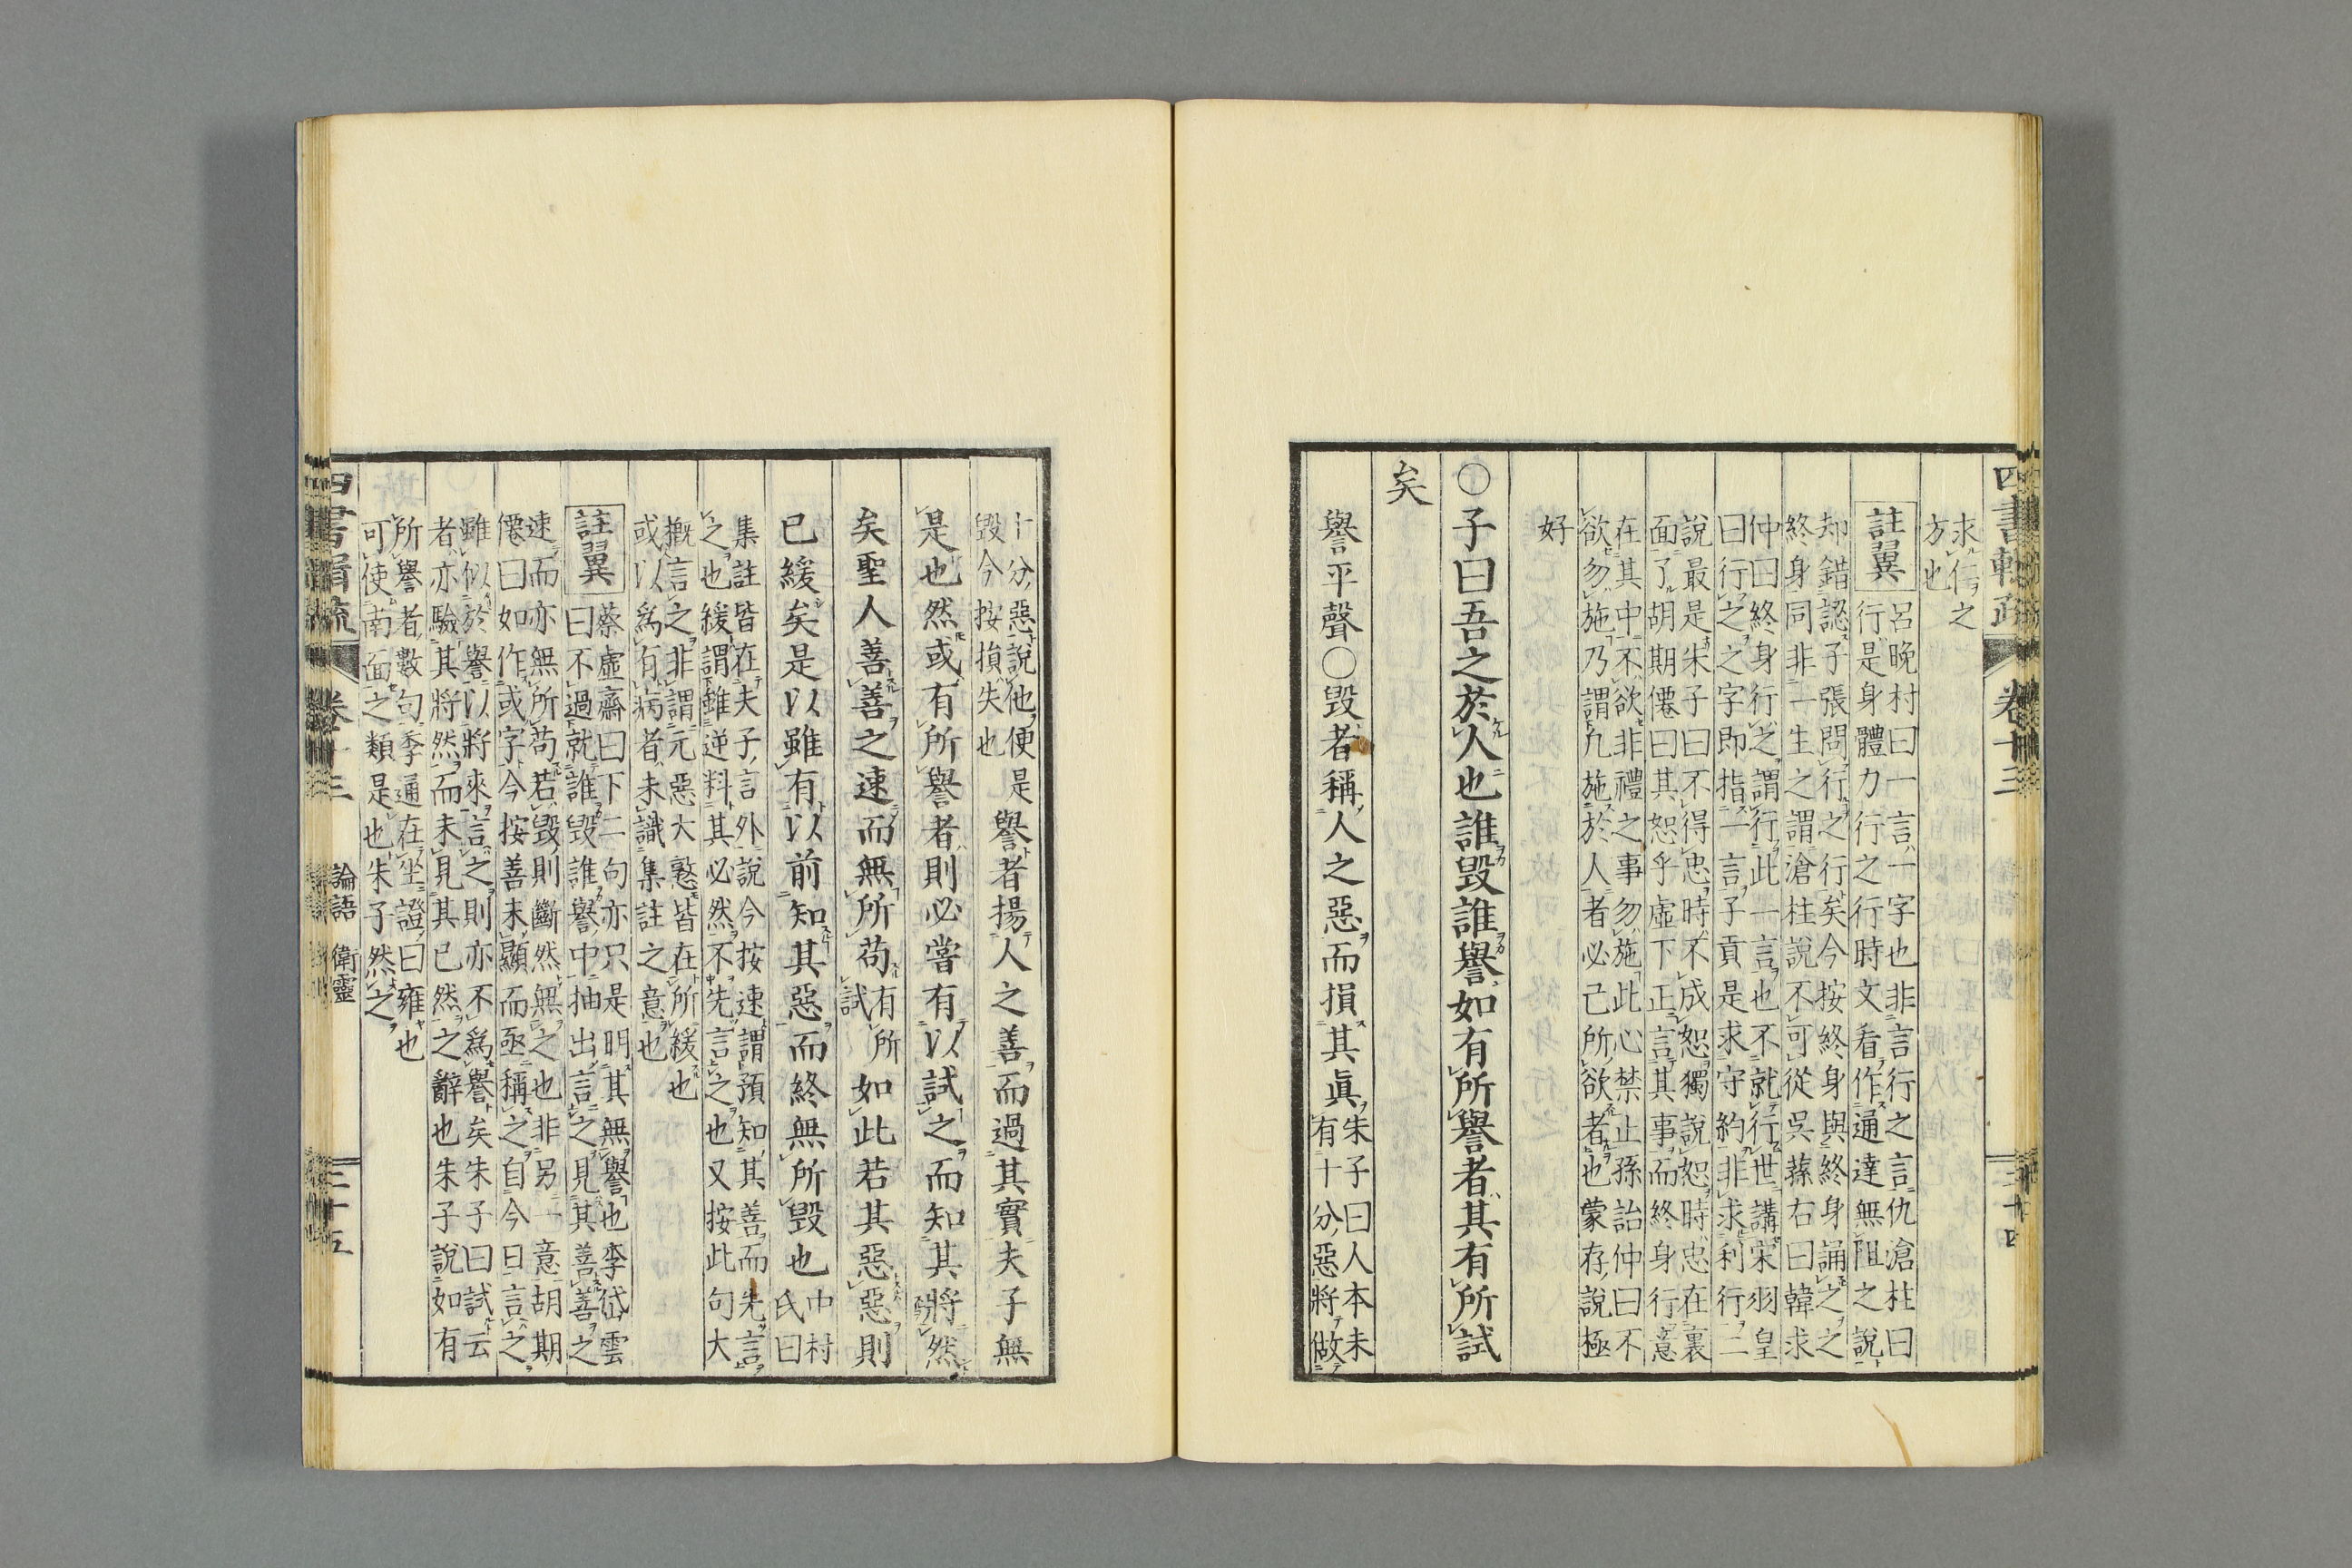 求仁之
方也
註翼
呂晚村曰一言一字也非言行之言仇滄柱曰
行是身體力行之行時文看作通達無阻之說
却錯認子張問行之行矣今按終身與終身誦之之
終身同非一生之謂滄柱說不可從吳蓀右曰韓求
仲曰終身行之謂行此一言也不就行世講宋羽皇
曰行之之字即指一言子貢是求守約非求利行二
說最是朱子曰不得忠時不成恕獨說恕時忠在裏
面了胡期僊曰其恕乎虛下正言其事而終身行意
在其中不欲非禮之事勿施此心禁止孫詒仲曰不
欲勿施乃謂凢施於人者必己所欲者也蒙存說極
好
〇子曰吾之於人也誰毀誰譽如有所譽者其有所試
矣
譽平聲〇毀者稱人之惡而損其眞
朱子曰人本未
有十分惡將做
十分惡說他便是
毀今按損失也
譽者揚人之善而過其實夫子無
是也然或有所譽者則必嘗有以試之而知其將然
矣聖人善善之速而無所苟
有所
試
如此若其惡惡則
已緩矣是以雖有以前知其惡而終無所毀也
中村
氏曰
集註皆在夫子言外說今按速謂預知其善而先言
之也緩謂雖逆料其必然不先言之也又按此句大
概言之非謂元惡大憝皆在所緩也
或以爲有病者未識集註之意也
註翼
蔡虛齋曰下二句亦只是明其無譽也李岱雲
曰不過就誰毀誰譽中抽出言之見其善善之
速而亦無所苟若毀則斷然無之也非另一意胡期
僊曰如作或字今按善未顯而亟稱之自今日言之
雖似於譽以將來言之則亦不爲譽矣朱子曰試云
者亦驗其將然而未見其已然之辭也朱子說如有
所譽者數句季通在坐證曰雍也
可使南面之類是也朱子然之
論語 衛靈